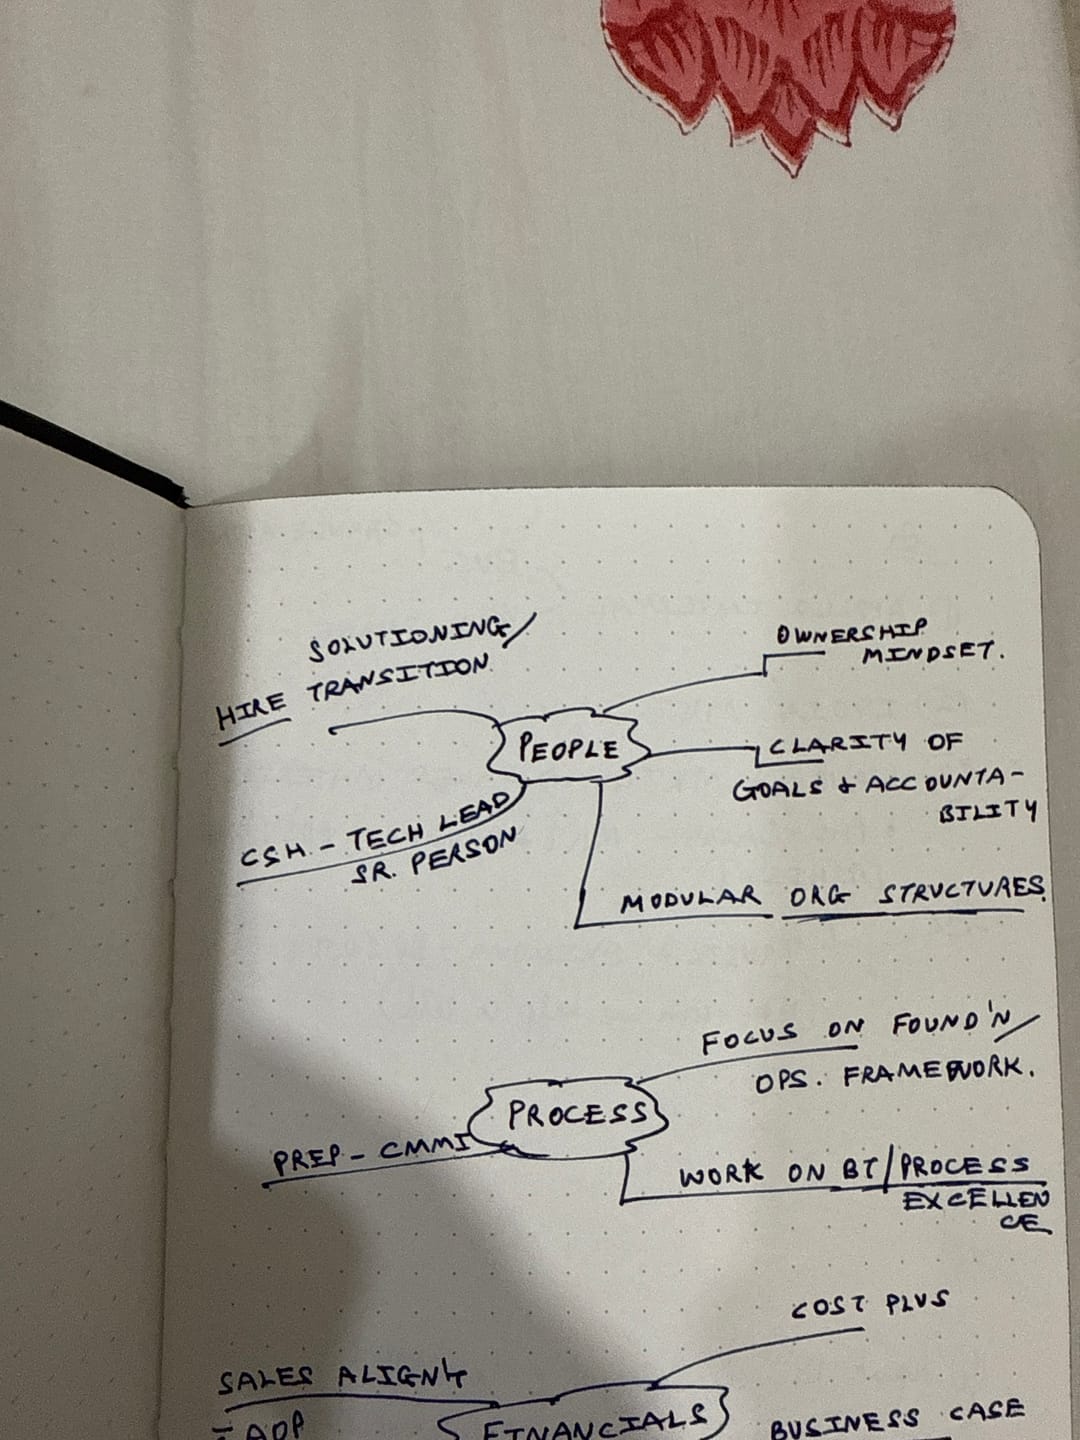 SOLUTIONING/
HIRE TRANSITION
OWNERSHIP
MINDSET.
PEOPLE
CLARITY OF
GOALS & ACCOUNTA-
BILITY
CSH - TECH LEAD
SR. PERSON
MODULAR ORG STRUCTURES.
FOCUS ON FOUND'N/
OPS. FRAMEWORK.
PROCESS
PREP - CMMI
WORK ON BT/PROCESS
EXCELLEN
CE
COST PLUS
SALES ALIGN
FINANCIALS
BUSINESS CASE